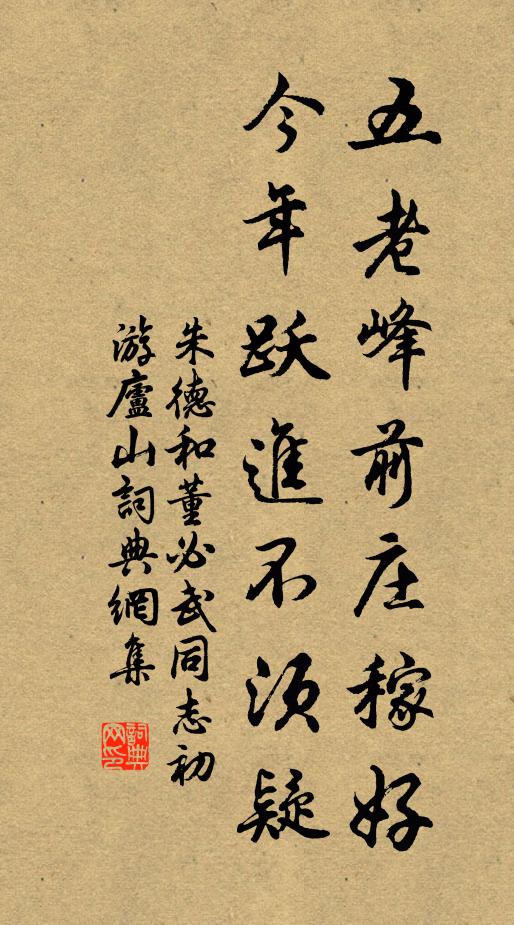 五老峰前庄稼好
今年跃進不須疑
朱德和董必武同志初
游廬山詞典網集
詞典
网印